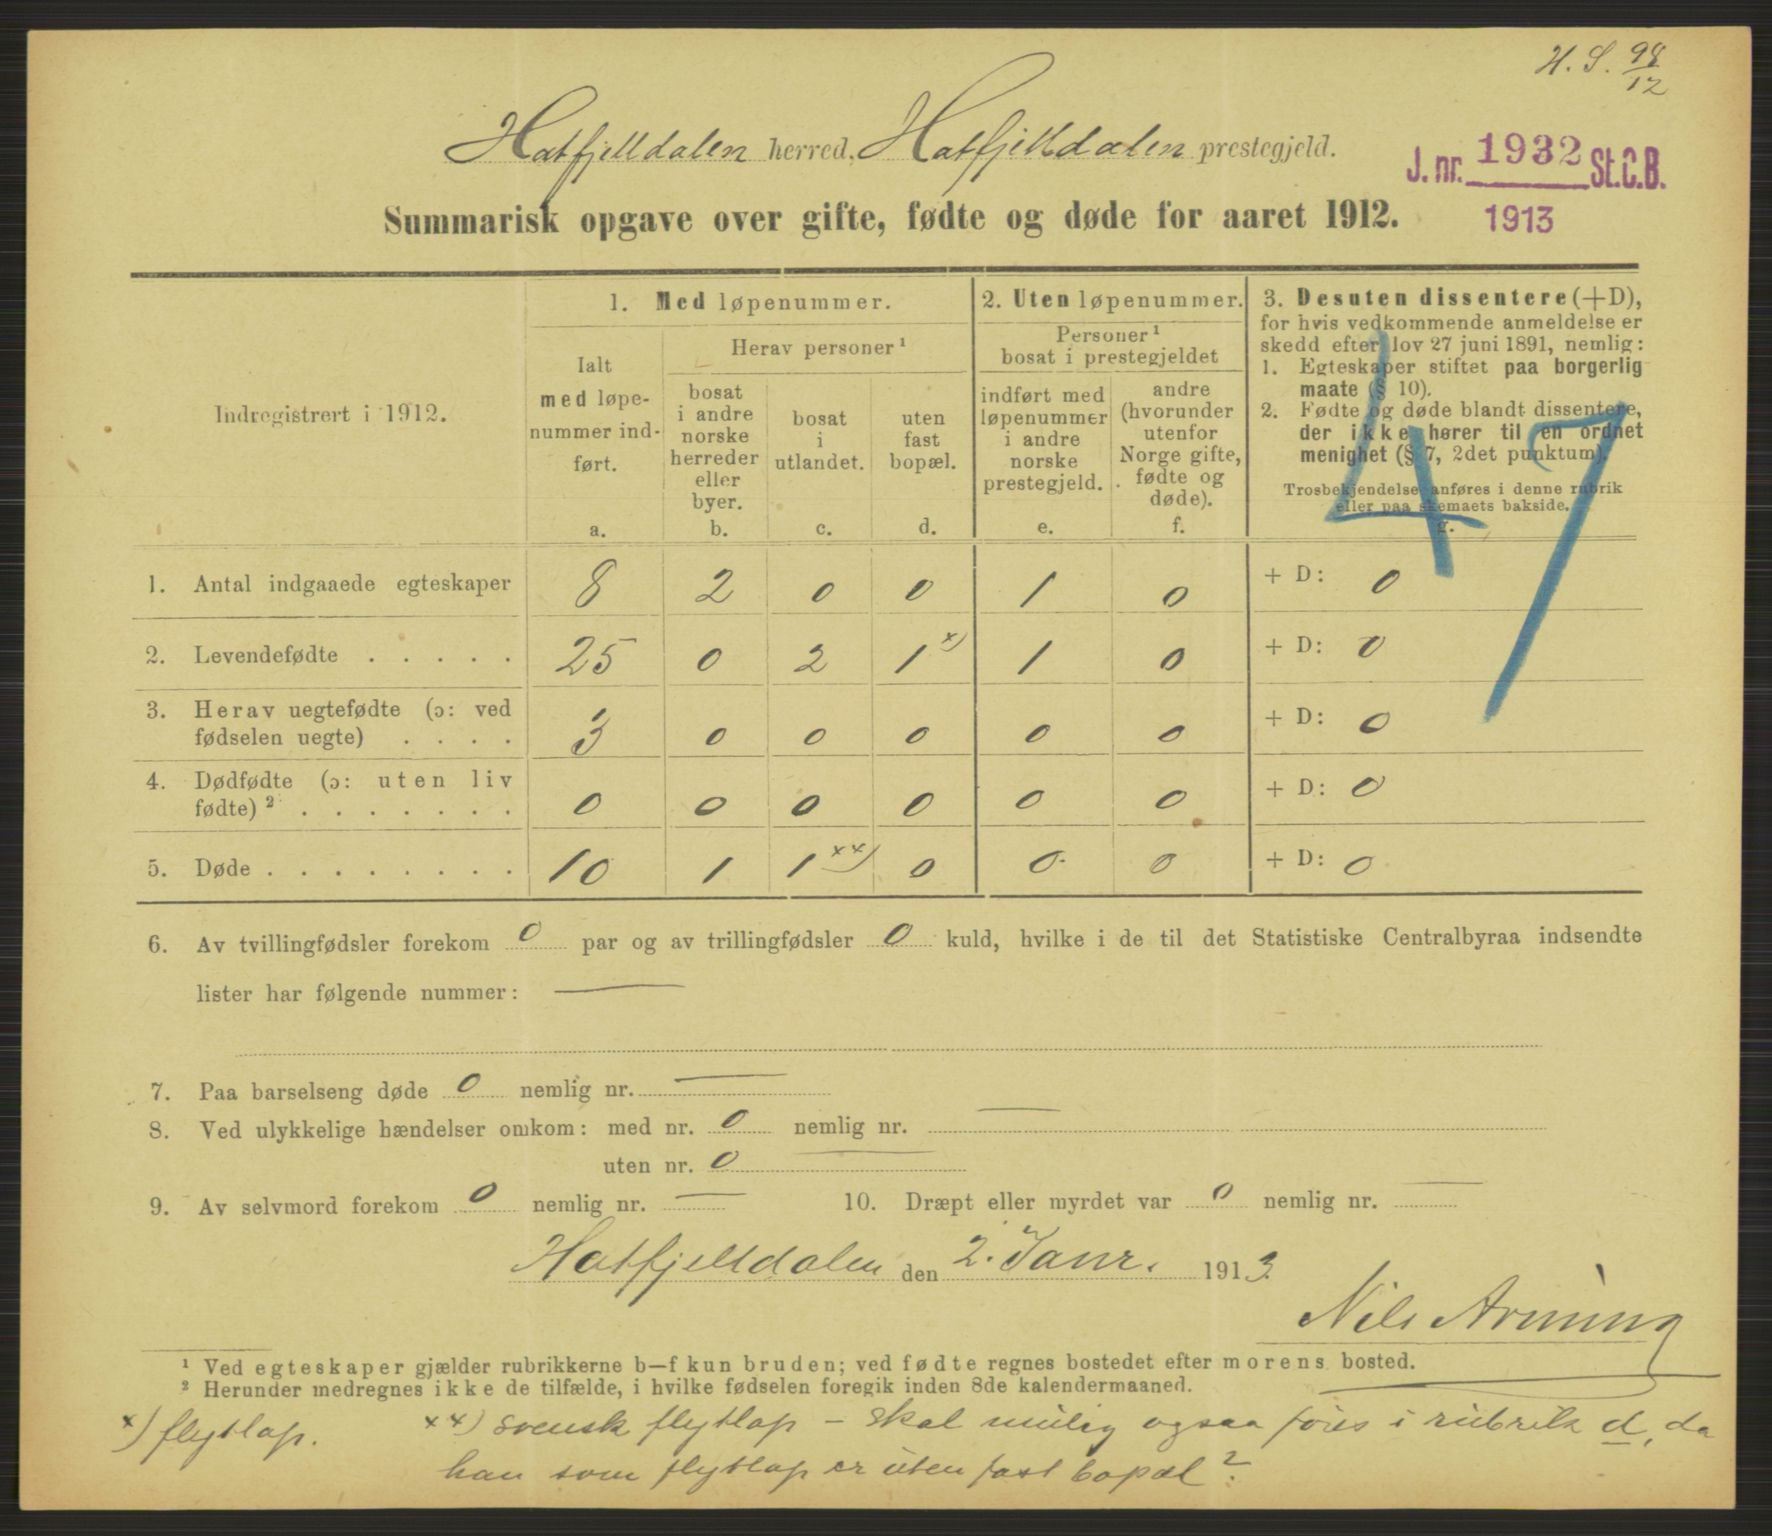 H. S. 98/12
Hatfjelldalen herred, Hatfjelldalen prestegjeld.
J. nr. 1932 St.C.B.
1913
Summarisk opgave over gifte, fødte og døde for aaret 1912.
Indregistrert i 1912.
1. Med løpenummer.
Ialt
med løpe-
nummer ind-
ført.
a.
Herav personer ¹
bosat
i andre
norske
herreder
eller
byer.
b.
bosat
i
utlandet.
c.
uten
fast
bopæl.
d.
2. Uten løpenummer.
Personer ¹
bosat i prestegjeldet
indført med
løpenummer
i andre
norske
prestegjeld.
e.
andre
(hvorunder
utenfor
Norge gifte,
fødte og
døde).
f.
3. Desuten dissentere (+D),
for hvis vedkommende anmeldelse er
skedd efter lov 27 juni 1891, nemlig:
1. Egteskaper stiftet paa borgerlig
maate (§ 10).
2. Fødte og døde blandt dissentere,
der ikke hører til en ordnet
menighet (§ 7, 2det punktum).
Trosbekjendelse anføres i denne rubrik
eller paa skemaets bakside.
g.
47
1. Antal indgaaede egteskaper 8 2 0 0 1 0 + D: 0
2. Levendefødte . . . . . 25 0 2 1 x) 1 0 + D: 0
3. Herav uegtefødte (ɔ: ved
fødselen uegte) . . . . 3 0 0 0 0 0 + D: 0
4. Dødfødte (ɔ: uten liv
fødte) ² . . . . . . . 0 0 0 0 0 0 + D: 0
5. Døde . . . . . . . . 10 1 1 xx) 0 0 0 + D: 0
6. Av tvillingfødsler forekom 0 par og av trillingfødsler 0 kuld, hvilke i de til det Statistiske Centralbyraa indsendte
lister har følgende nummer: —
7. Paa barselseng døde 0 nemlig nr. —
8. Ved ulykkelige hændelser omkom: med nr. 0 nemlig nr. —
uten nr. 0 —
9. Av selvmord forekom 0 nemlig nr. — 10. Dræpt eller myrdet var 0 nemlig nr. —
Hatfjelldalen den 2. Janr. 1913.
Nils Arning
¹ Ved egteskaper gjælder rubrikkerne b—f kun bruden; ved fødte regnes bostedet efter morens bosted.
² Herunder medregnes ikke de tilfælde, i hvilke fødselen foregik inden 8de kalendermaaned.
x) flytlap. xx) svensk flytlap – skal mulig ogsaa føres i rubrik d, da
han som flytlap er uten fast bopæl?